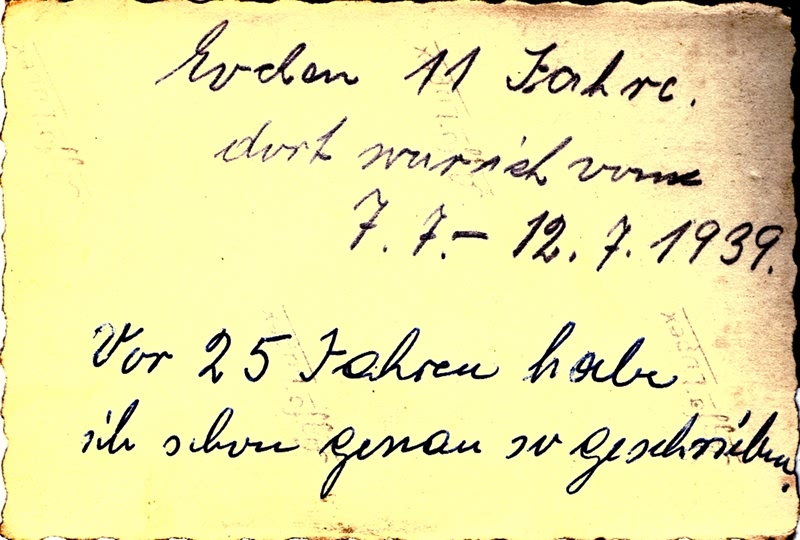 11 Jahre.
dort war ich vom
7. 7. – 12. 7. 1939.
Vor 25 Jahren habe
ich schon genau so geschrieben.